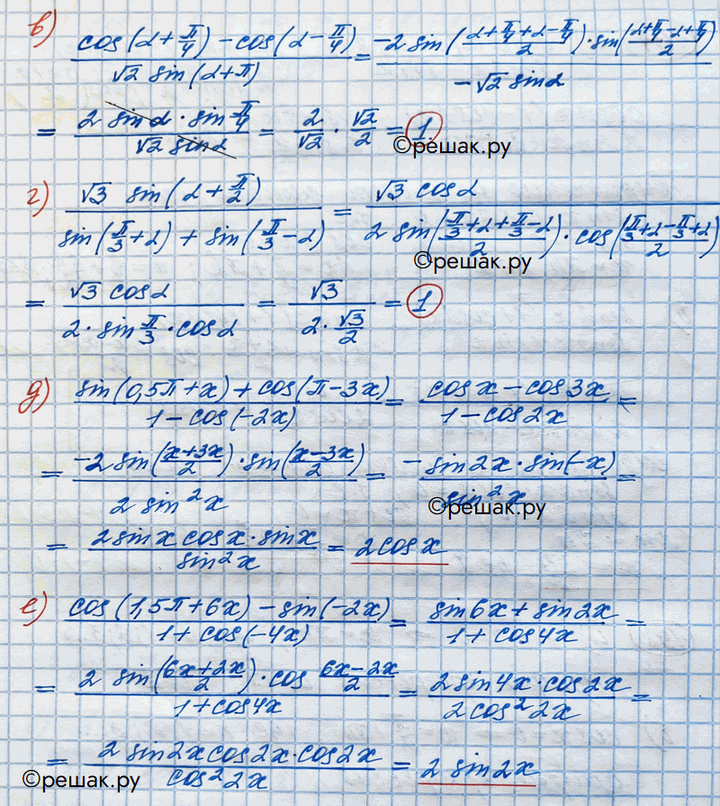 в) (cos(α+π/4) − cos(α−π/4))/(√2 sin(α+π)) = (−2 sin((α+π/4+α−π/4)/2)·sin((α+π/4−α+π/4)/2))/(−√2 sinα)
= (2 sinα · sin π/4)/(√2 sinα) = 2/√2 · √2/2 = 1
©решак.ру
г) (√3 sin(α+π/2))/(sin(π/3+α) + sin(π/3−α)) = (√3 cosα)/(2 sin((π/3+α+π/3−α)/2)·cos((π/3+α−π/3+α)/2))
©решак.ру
= (√3 cosα)/(2·sin π/3·cosα) = √3/(2·√3/2) = 1
д) (sin(0,5π+x) + cos(π−3x))/(1−cos(−2x)) = (cosx − cos3x)/(1−cos2x) =
= (−2 sin((x+3x)/2)·sin((x−3x)/2))/(2 sin²x) = (−sin2x·sin(−x))/(sin²x) =
©решак.ру
= (2sinx cosx·sinx)/(sin²x) = 2cosx
е) (cos(1,5π+6x) − sin(−2x))/(1+cos(−4x)) = (sin6x + sin2x)/(1+cos4x) =
= (2 sin((6x+2x)/2)·cos (6x−2x)/2)/(1+cos4x) = (2sin4x·cos2x)/(2cos²2x) =
= (2 sin2xcos2x·cos2x)/(cos²2x) = 2 sin2x
©решак.ру